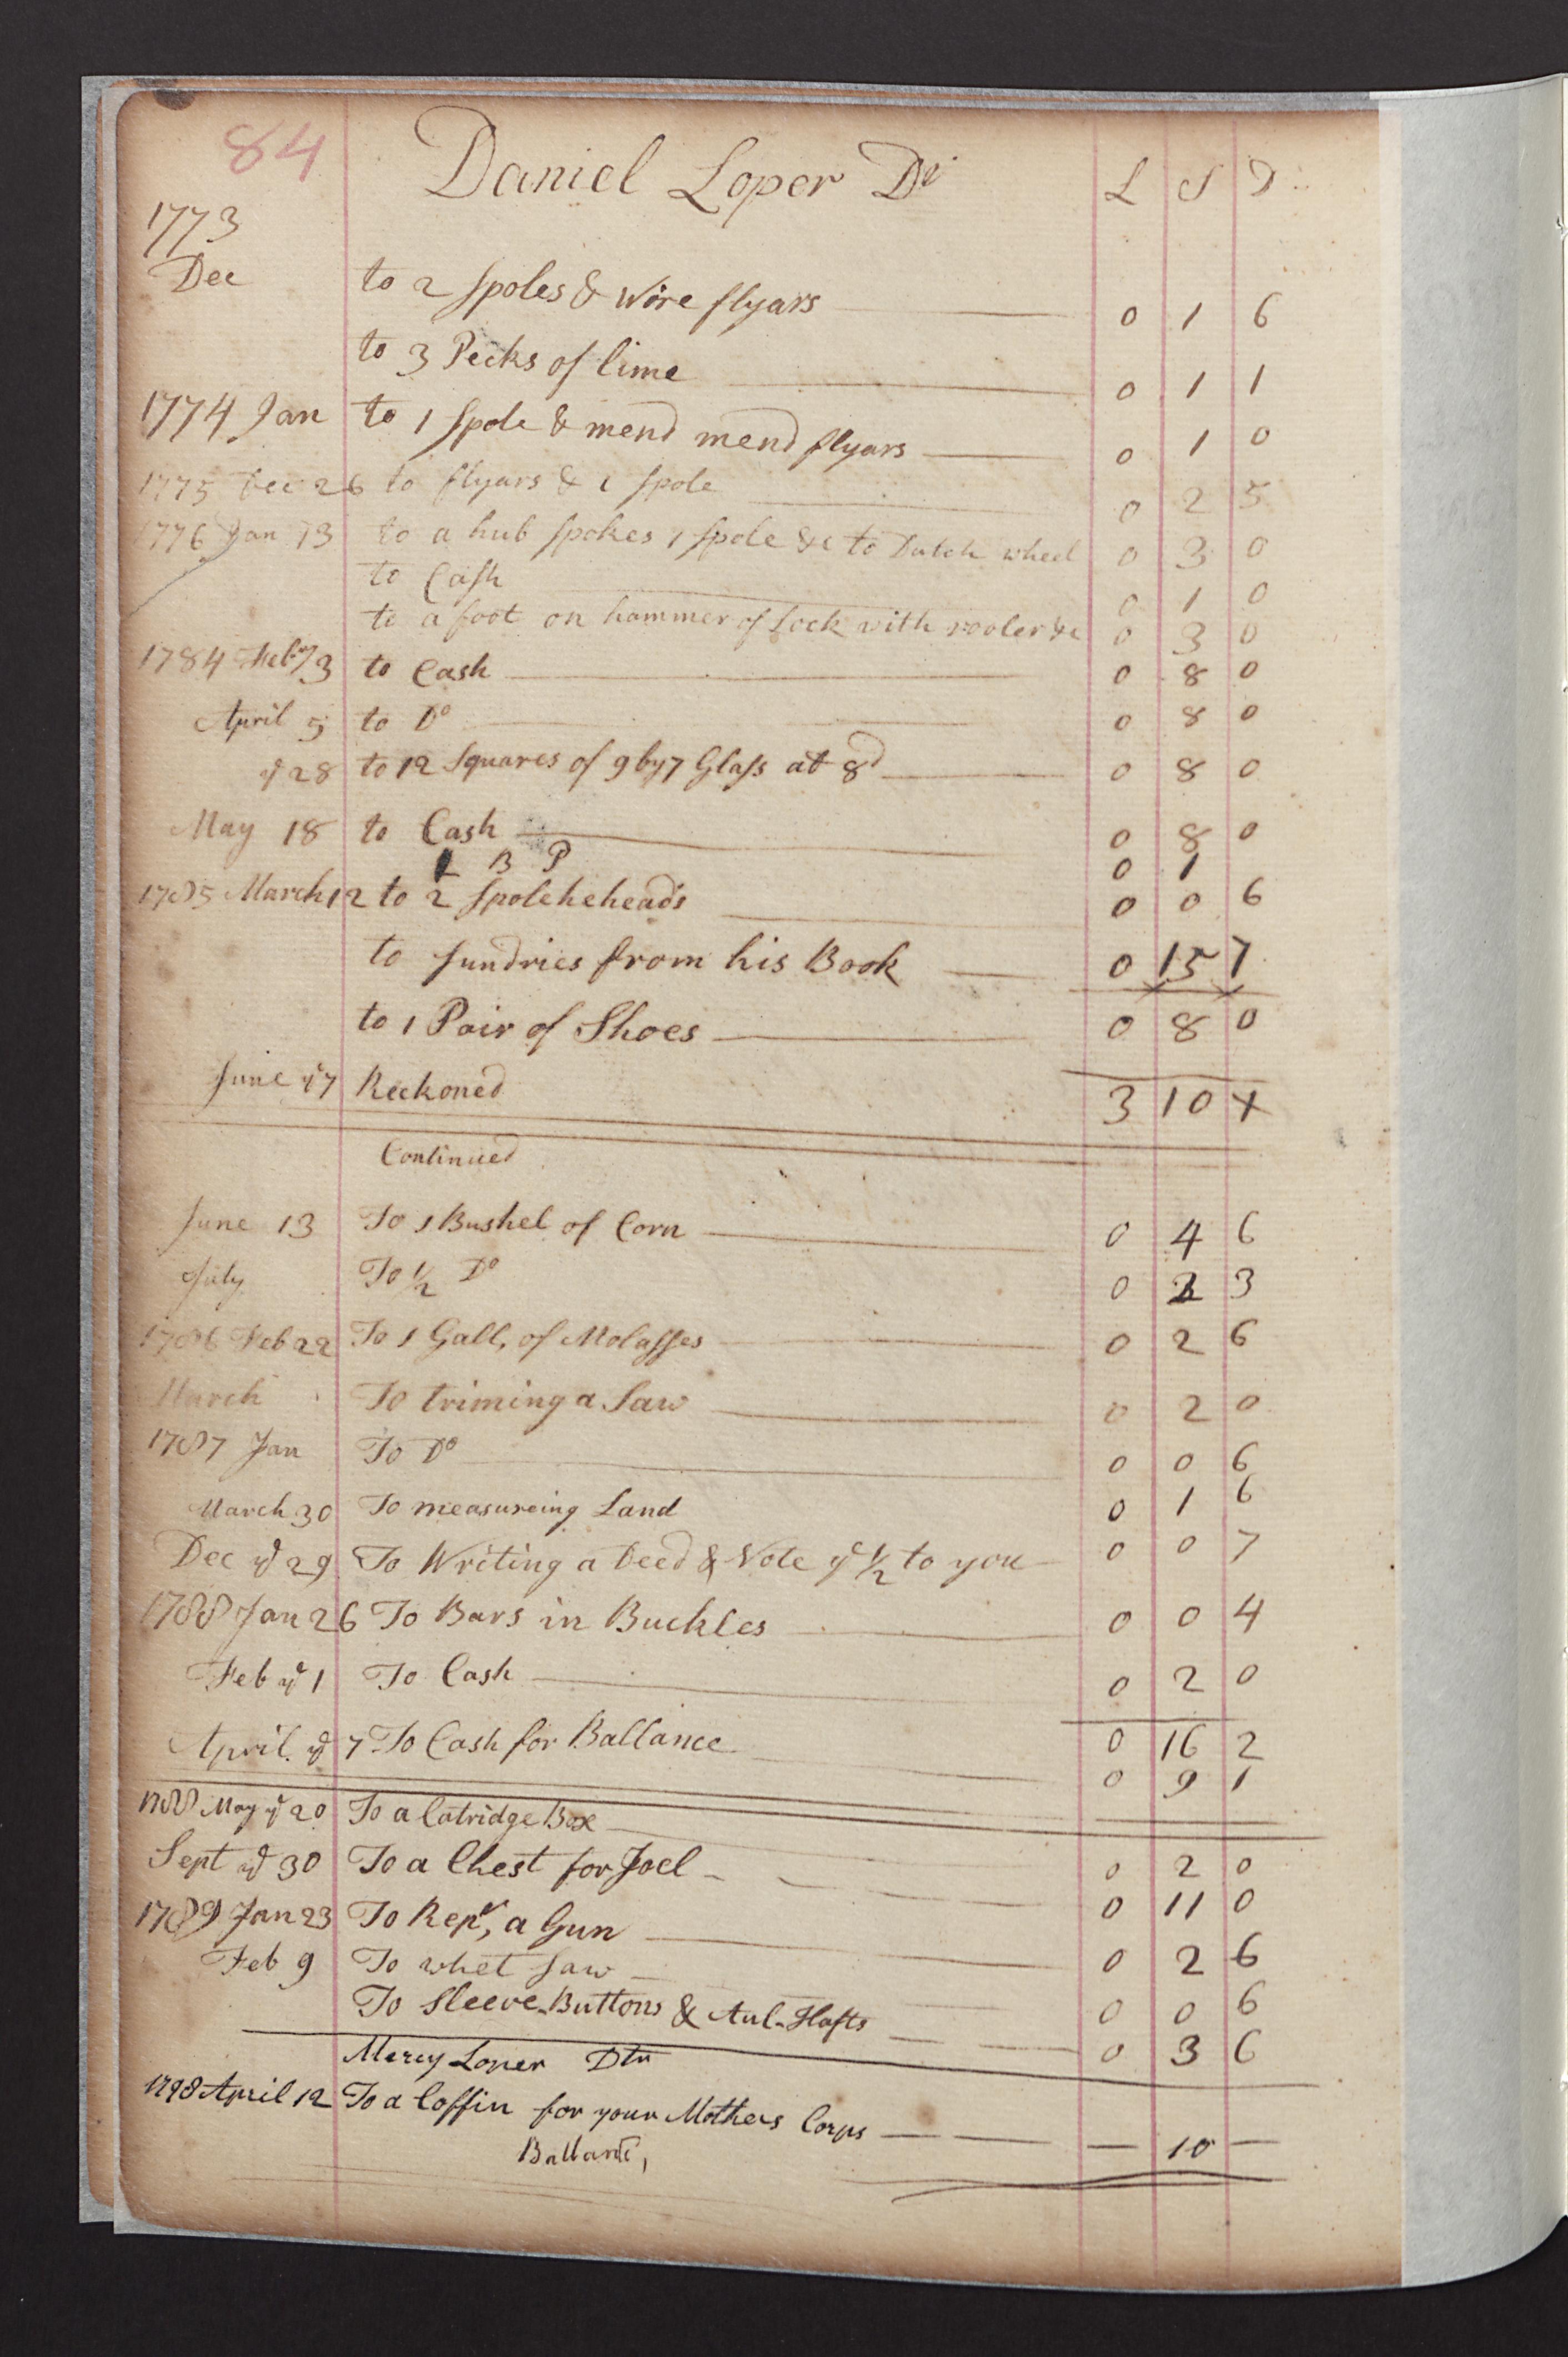 84
Daniel Loper Dr L S D
1773
Dec to 2 Spoles & Wire flyars 0 1 6
to 3 Pecks of lime 0 1 1
1774 Jan to 1 Spole & mend mend flyars 0 1 0
1775 Dec 26 to flyars & 1 Spole 0 2 5
1776 Jan 13 to a hub Spokes 1 Spole &c to Dutch wheel 0 3 0
to Cash 0 1 0
to a foot on hammer of Lock with rooler &c 0 3 0
1784 Feby 3 to Cash 0 8 0
April 5 to Do 0 8 0
ye 28 to 12 Squares of 9 by 7 Glass at 8d 0 8 0
May 18 to Cash 0 8 0
1 B P 0 1
1785 March 12 to 2 Spoleheheads 0 0 6
to Sundries from his Book 0 15 7
to 1 Pair of Shoes 0 8 0
June ye 7 Reckoned 3 10
Continued
June 13 To 1 Bushel of Corn 0 4 6
July To 1/2 Do 0 2 3
1786 Feb 22 To 1 Gall, of Molasses 0 2 6
March To triming a Saw 0 2 0
1787 Jan To Do 0 0 6
March 30 To measureing Land 0 1 6
Dec ye 29 To Writing a Deed & Note ye 1/2 to you 0 0 7
1788 Jan 26 To Bars in Buckles 0 0 4
Feb ye 1 To Cash 0 2 0
0 16 2
April ye 7 To Cash for Ballance 0 9 1
1788 May ye 20 To a Catridge Box 0 2 0
Sept ye 30 To a Chest for Joel 0 11 0
1789 Jan 23 To Repr, a Gun 0 2 6
Feb 9 To whet Saw 0 0 6
To Sleeve Buttons & Aul-Hafts 0 3 6
Mercy Loper Dtr
1798 April 12 To a Coffin for your Mothers Corps — 10 —